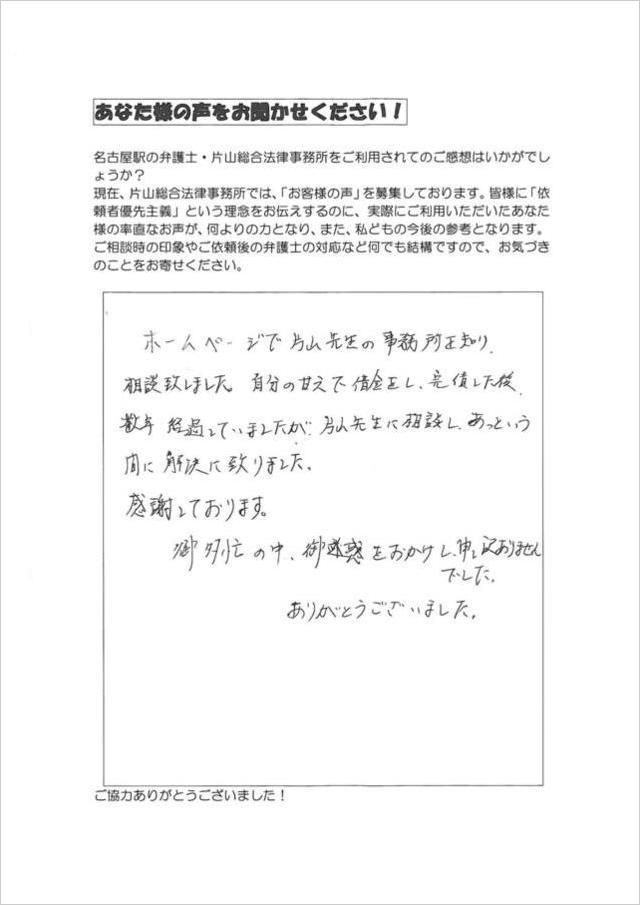 あなた様の声をお聞かせください！
名古屋駅の弁護士・片山総合法律事務所をご利用されてのご感想はいかがでし
ょうか？
現在、片山総合法律事務所では、「お客様の声」を募集しております。皆様に「依
頼者優先主義」という理念をお伝えするのに、実際にご利用いただいたあなた
様の率直なお声が、何よりの力となり、また、私どもの今後の参考となります。
ご相談時の印象やご依頼後の弁護士の対応など何でも結構ですので、お気づき
のことをお寄せください。
ホームページで片山先生の事務所を知り、
相談致しました。自分の甘えで借金をし、完債した後、
数年経過していましたが、片山先生に相談し、あっという
間に解決に致りました。
感謝しております。
御多忙の中、御迷惑をおかけし、申し訳ありません
でした。
ありがとうございました。
ご協力ありがとうございました！